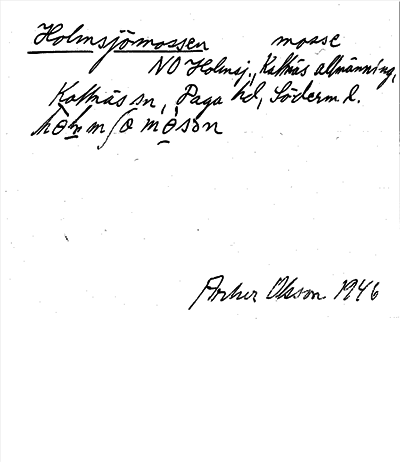 Holmsjömossen mosse
NO Holmsj., Kattnäs allmänning,
Kattnäs sn, Daga hd, Söderm l.
Olsson 1946